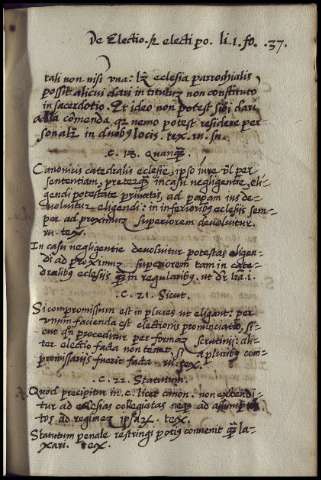 De Electio. & electi po. li. I. fo. .37.
tali non nisi vna: lz eclesia parrochialis
possit alicui dari in titulum non constituto
in sacerdotio. Et ideo non potest sibi dari
alia comenda qz nemo potest residere per
sonalr in duobus locis. tex. in. su.
C. 18. Quanq̃.
Canonicis catedralis eclesie, ipso iure vl per
sententiam, preterqz in casu negligentie, eli-
gendi potestate priuatis, ad papam ius de-
voluitur eligendi: in inferioribus eclesiis sem-
per ad proximum superiorem deuoluitur
ut. tex.
In casu negligentie deuoluitur potestas eligen-
di ad proximum superiorem tam in cate-
dralibus eclesiis qz in regularibus. ut dr
C. 21. Sicut.
Si compromissum est in plures ut eligant: per
vnum facienda est electionis pronunciatio, si-
cut dum proceditur per formam scrutinii: ali-
ter electio facta non tenet, si a pluribus com-
promissariis fuerit facta. ut. tex.
.C. 22. Statutum.
Quod precipitur in .c. licet canon. non extendi-
tur ad eclesias collegiatas neqz ad assump-
tos ad regimen ipsarum. tex.
Statutum penale restringi potius conuenit qz la-
xari. tex.